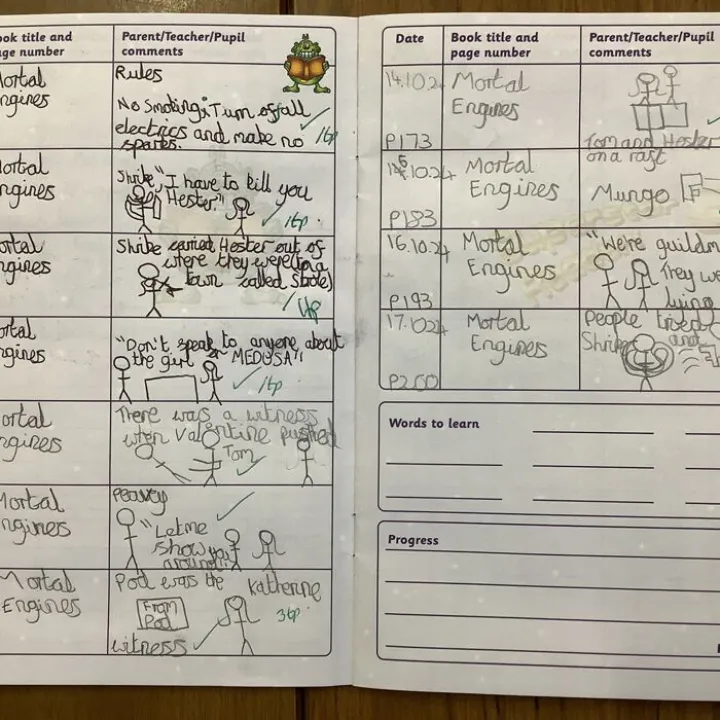 ook title and
age number
Parent/Teacher/Pupil
comments
ortal
ngines
Rules
No Smoking, Turn of all
electrics and make no
sparks.
1tp
ortal
ngines
Shrike, "I have to kill you
Hester."
1tp.
ortal
ngines
Shrike carried Hester out of
where they were (to a
town called Strole)
ortal
ngines
"Don't speak to anyone about
the girl or MEDUSA"
1tp
ortal
ngines
There was a witness
when Valentine pushed
Tom
Mortal
ngines
Peavey
"Let me
show you
around"
Mortal
Engines
Pod was the
Katherine
From
Pod
witness
3tp.
Date
Book title and
page number
Parent/Teacher/Pupil
comments
14.10.2
P173
Mortal
Engines
Tom and Hester
on a raft
15.10.24
P183
Mortal
Engines
Mungo
16.10.24
P193
Mortal
Engines
"We're guildm
They we
lying
17.1024
P200
Mortal
Engines
People tried
Shrike
and
Words to learn
Progress